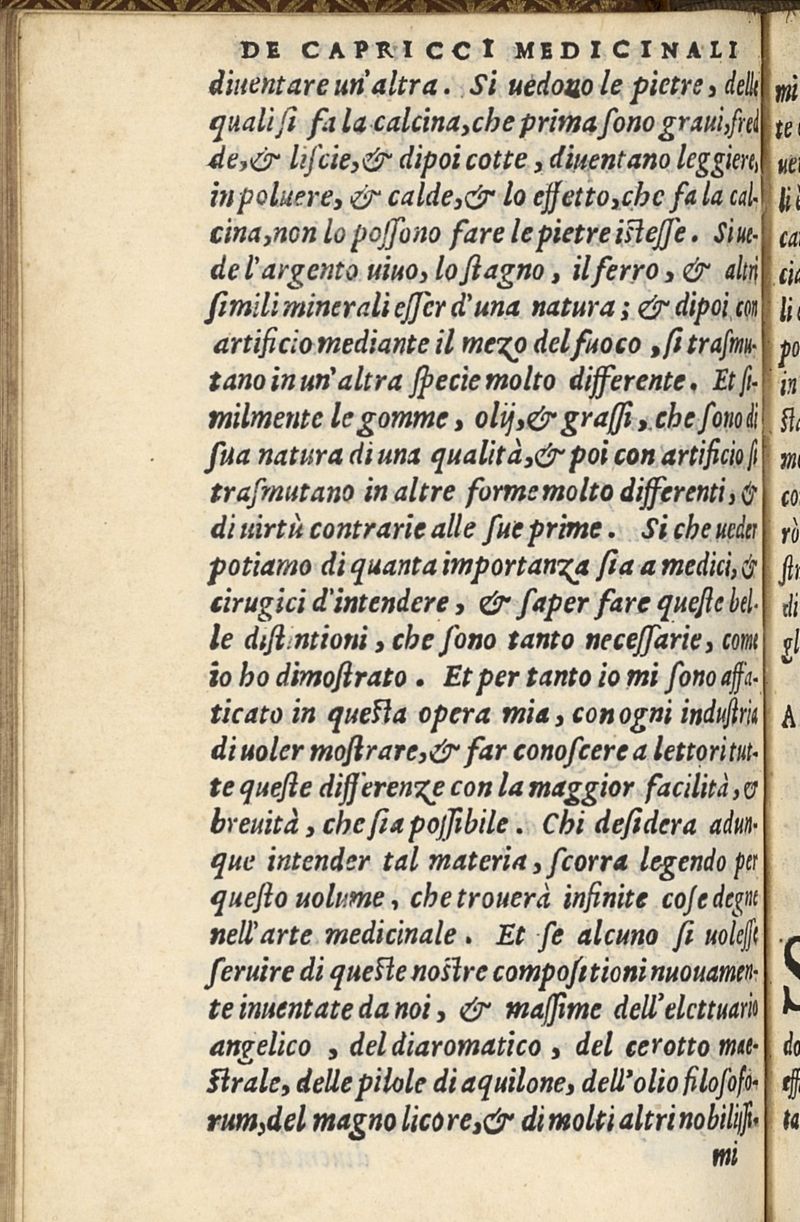 DE CAPRICCI MEDICINALI
diuentare un'altra. Si uedono le pietre, delle
quali si fa la calcina, che prima sono graui, fred
de, & liscie, & dipoi cotte, diuentano leggiere,
in poluere, & calde, & lo effetto, che fa la cal-
cina, non lo possono fare le pietre istesse. Si ue-
de l'argento uiuo, lo stagno, il ferro, & altri
simili minerali esser d'una natura; & dipoi con
artificio mediante il mezo del fuoco, si trasmu-
tano in un'altra specie molto differente. Et si-
milmente le gomme, olij, & grassi, che sono di
sua natura di una qualità, & poi con artificio si
trasmutano in altre forme molto differenti, &
di uirtù contrarie alle sue prime. Si che ueder
potiamo di quanta importanza sia a medici, &
cirugici d'intendere, & saper fare queste bel-
le distintioni, che sono tanto necessarie, come
io ho dimostrato. Et per tanto io mi sono affa-
ticato in questa opera mia, con ogni industria
di uoler mostrare, & far conoscere a lettori tut-
te queste differenze con la maggior facilità, &
breuità, che sia possibile. Chi desidera adun-
que intender tal materia, scorra legendo per
questo uolume, che trouerà infinite cose degne
nell'arte medicinale. Et se alcuno si uolesse
seruire di queste nostre compositioni nuouamen-
te inuentate da noi, & massime dell'elettuario
angelico, del diaromatico, del cerotto mae-
strale, delle pilole di aquilone, dell'olio filosofo-
rum, del magno licore, & di molti altri nobilissi-
mi